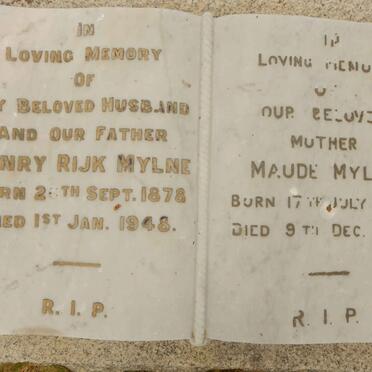 IN
LOVING MEMORY
OF
Y BELOVED HUSBAND
AND OUR FATHER
NRY RIJK MYLNE
RN 2 TH SEPT. 1878
ED 1ST JAN. 1948.
R. I. P.
IN
LOVING MEMO
OUR BELOVE
MOTHER
MAUDE MYL
BORN 17TH JULY
DIED 9TH DEC.
R. I. P.